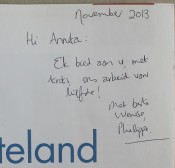 November 2013
Hi Annika:
Ek bied aan u met
ons arbeid van
liefde!
Met beste
Wense,
Philippa.
teland